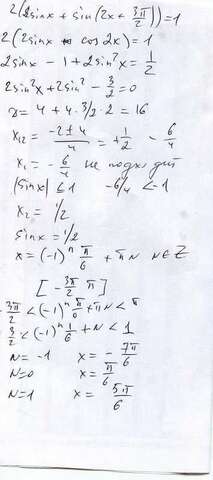 2(2sinx + sin(2x + 3π/2)) = 1
2(2sinx - cos2x) = 1
2sinx - 1 + 2sin²x = 1/2
2sin²x + 2sin² - 3/2 = 0
D = 4 + 4·3/2·2 = 16
x₁₂ = (-2±4)/4 = +1/2 - 6/4
x₁ = -6/4 не подходит
|sinx| ≤ 1 -6/4 < -1
x₂ = 1/2
sinx = 1/2
x = (-1)ⁿ π/6 + πN N∈Z
[-3π/2 π]
3π/2 < (-1)ⁿ π/6 + πN < π
3/2 < (-1)ⁿ 1/6 + N < 1
N = -1 x = -7π/6
N=0 x = π/6
N=1 x = 5π/6